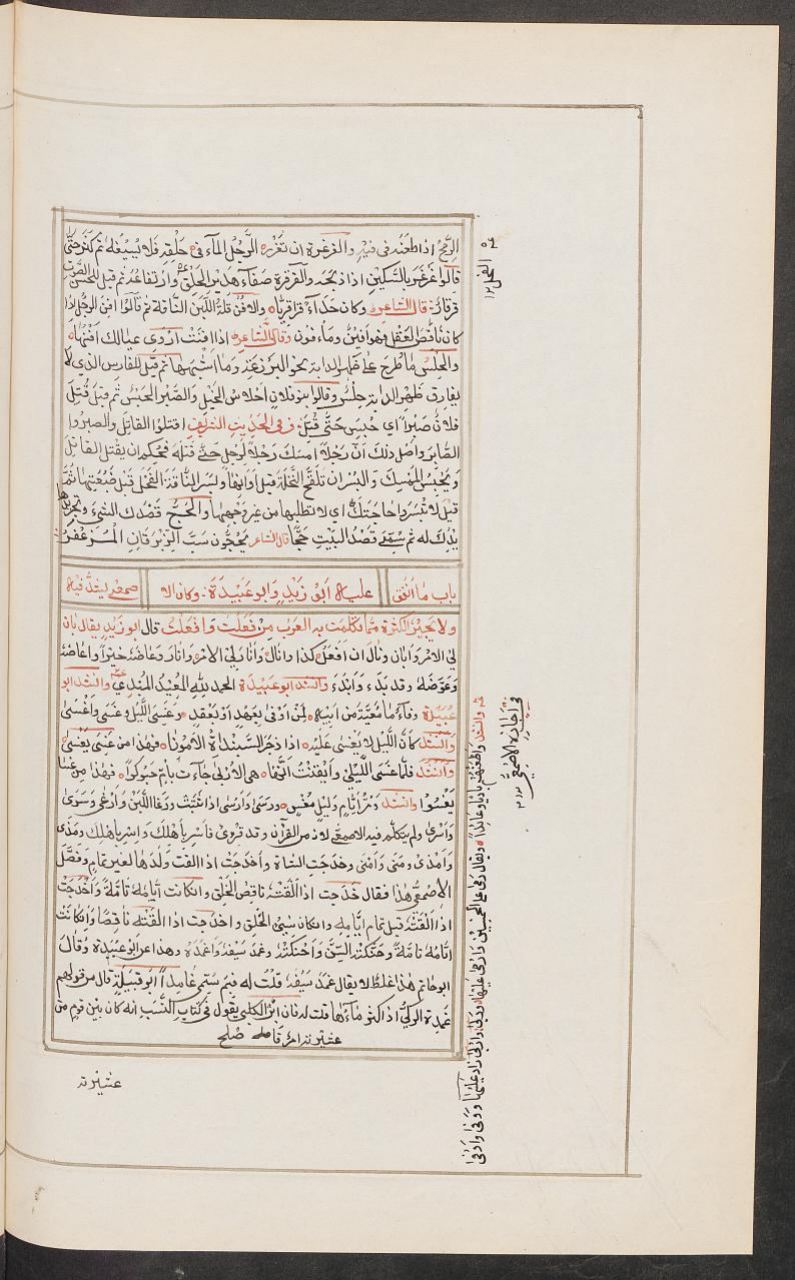 الرمح اذا طعنه في فيه والغرغرة ان تغرره الرجل المآء في حلقه فلا يسيغه ثم كثر حتى
قالوا غرغره بالسكين اذا ذبحه والقرقرة صفاء هدير الحلق وارتفاعه ثم قيل للحسن الصوت
قرقار قال الشاعر وكان حداء قراقريا والافن قلة اللبن الناقة ثم قالوا افن الرجل اذا
كان ناقص العقل فهو افين ومافون وقال الشاعر اذا افنت اروى عيالك افنها
والحلس ما طرح على ظهر الدابة نحو البرذعة وما اشبهها ثم قيل للفارس الذي لا
يفارق ظهر الدابة حلس وقالوا بنو فلان احلاس الخيل والصبر الحبس ثم قيل قتل
فلان صبرا اي حبس حتى قتل وفي الحديث الشريف اقتلوا القاتل والصبروا
الصابر واصل ذلك ان رجلا امسك رجلا لرجل حتى قتله فحكم ان يقتل القاتل
ويحبس الممسك والبسر ان تلقح النخلة قبل اوانها وبسر الناقة الفحل قبل ضبعتها ثم
قيل لا تبسر حاجتك اي لا تطلبها من غير وجهها والحج قصدك الشيء وتجريدك
ثم سمي قصد البيت حجا قال الشاعر يحجون سب الزبرقان المزعفرا
باب ما اتفق عليه ابو زيد وابو عبيدة وكان الا صمعي يشدد فيه
ولا يجيز اكثره مما تكلمت به العرب من فعلت وافعلت قال ابو زيد يقال بان
لي الامر وابان ونال ان افعل كذا وانال وانا ولي الامر وانار وعاضه خيرا واعاضه
وعوضه وقد بدء وابدء وانشد ابو عبيدة الحمد لله المعيد المبدي وانشد ابو
عبيدة وفاء ما معية من ابيه لمن اوفى بعهد او بعقد وغسى الليل وغسى واغسى
وانشد كان الليل لا يغسى عليه اذا زجر السبنداة الامونا فهذا من غسى يغسى
وانشد فلما غسى الليلى وايقنت انها هي الاربى جاءت بام حبوكرا فهذا من غسا
يغسوا وانشد ومر ايام وليل مغس ورسى وارسى اذا ثبت ورغا اللبن وارغى وسرى
واسرى ولم يتكلم فيه الاصمعي لانه من القرآن وقد قروى فاسر باهلك واسر باهلك ومذى
وامذى ومنى وامنى وخدجت الشاة واخدجت اذا القت ولدها لغير تمام وفصل
الاصمعي هذا فقال خدجت اذا القته ناقص الخلق وانكانت ايامه تامة واخدجت
اذا القته قبل تمام ايامه وانكان سوي الخلق واخدجت اذا القته ناقصا وانكانت
ايامه تامة وحنكته السن واحنكته وغمد سيفه واغمده وهذا عن ابو عبيدة وقال
ابو حاتم هذا غلط لا يقال غمد سيفه قلت له فبم سمي غامدا ابو قبيلة قال من قولهم
غمدة الركي اذا كثر ماءها قلت له فان ابن الكلبي يقول في كتاب النسب انه كان بين قوم من
عشيرته امر فاصلح
عشيرته
الفحل
وانشد واطعنهم باديا وعائدا ويقال رمى على الخمسين وارمى عليها زاد عليها ودنى وادنى
في اجازة الاصمعي